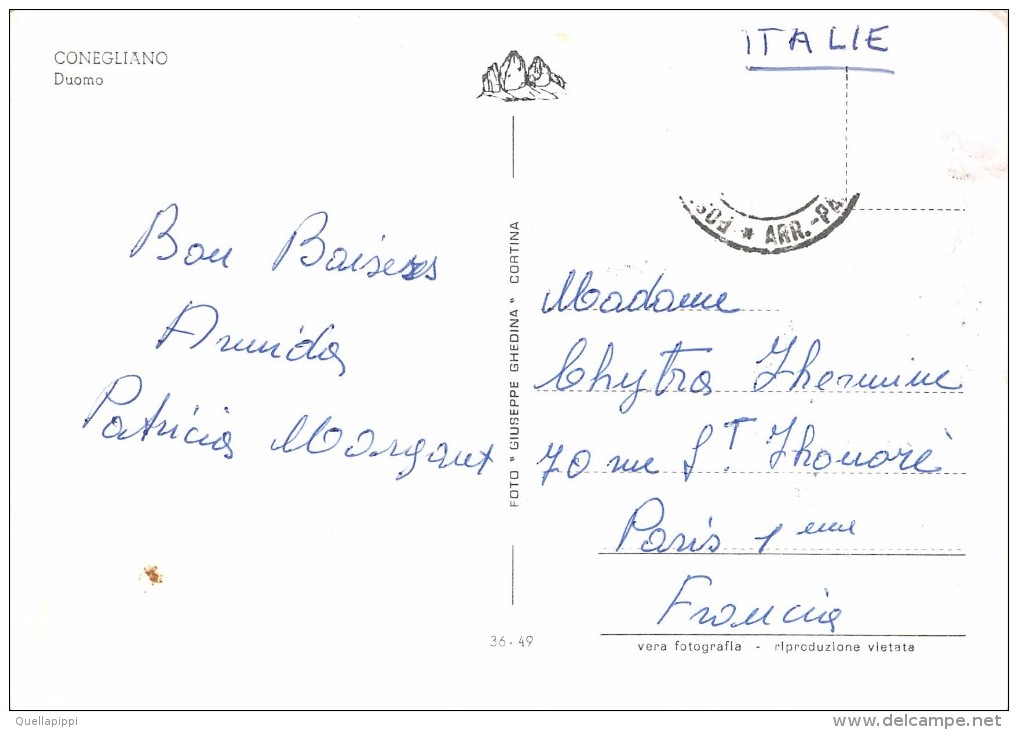 CONEGLIANO
Duomo
ITALIE
ARR.-PA
Bon Baiseses
Armida
Patricia Morgant
FOTO "GIUSEPPE GHEDINA" CORTINA
Madame
Chytra Jhermine
70 rue St. Jhonorè
Paris 1 eme
Francia
36-49
vera fotografia - riproduzione vietata
Quellapippi
www.delcampe.net